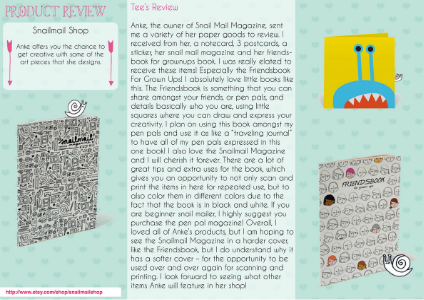 PRODUCT REVIEW
Snailmail Shop
Anke offers you the chance to
get creative with some of the
art pieces that she designs.
Snailmail
http://www.etsy.com/shop/snailmailshop
Tee's Review
Anke, the owner of Snail Mail Magazine, sent
me a variety of her paper goods to review. I
received from her, a notecard, 3 postcards, a
sticker, her snail mail magazine and her friends-
book for grownups book. I was really elated to
receive these items! Especially the Friendsbook
For Grown Ups! I absolutely love little books like
this. The Friendsbook is something that you can
share amongst your friends, or pen pals, and
details basically who you are, using little
squares where you can draw and express your
creativity. I plan on using this book amongst my
pen pals and use it as like a "traveling journal"
to have all of my pen pals expressed in this
one book! I also love the Snailmail Magazine
and I will cherish it forever. There are a lot of
great tips and extra uses for the book, which
gives you an opportunity to not only scan and
print the items in here for repeated use, but to
also color them in different colors due to the
fact that the book is in black and white. If you
are beginner snail mailer, I highly suggest you
purchase the pen pal magazine! Overall, I
loved all of Anke's products, but I am hoping to
see the Snailmail Magazine in a harder cover,
like the Friendsbook, but I do understand why it
has a softer cover - for the opportunity to be
used over and over again for scanning and
printing. I look forward to seeing what other
items Anke will feature in her shop!
FRIENDSBOOK